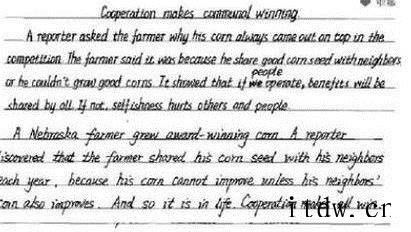 Cooperation makes communal winning.
A reporter asked the farmer why his corn always came out on top in the
competition. The farmer said it was because he share good corn seed with neighbors
or he couldn't grow good corns. It showed that if people we operate, benefits will be
shared by all. If not, selfishness hurts others and people.
A Nebraska farmer grew award-winning corn. A reporter
iscovered that the farmer shared his corn seed with his neighbors
each year, because his corn cannot improve unless his neighbors'
corn also improves. And so it is in life. Cooperation all win.
itdw.cn